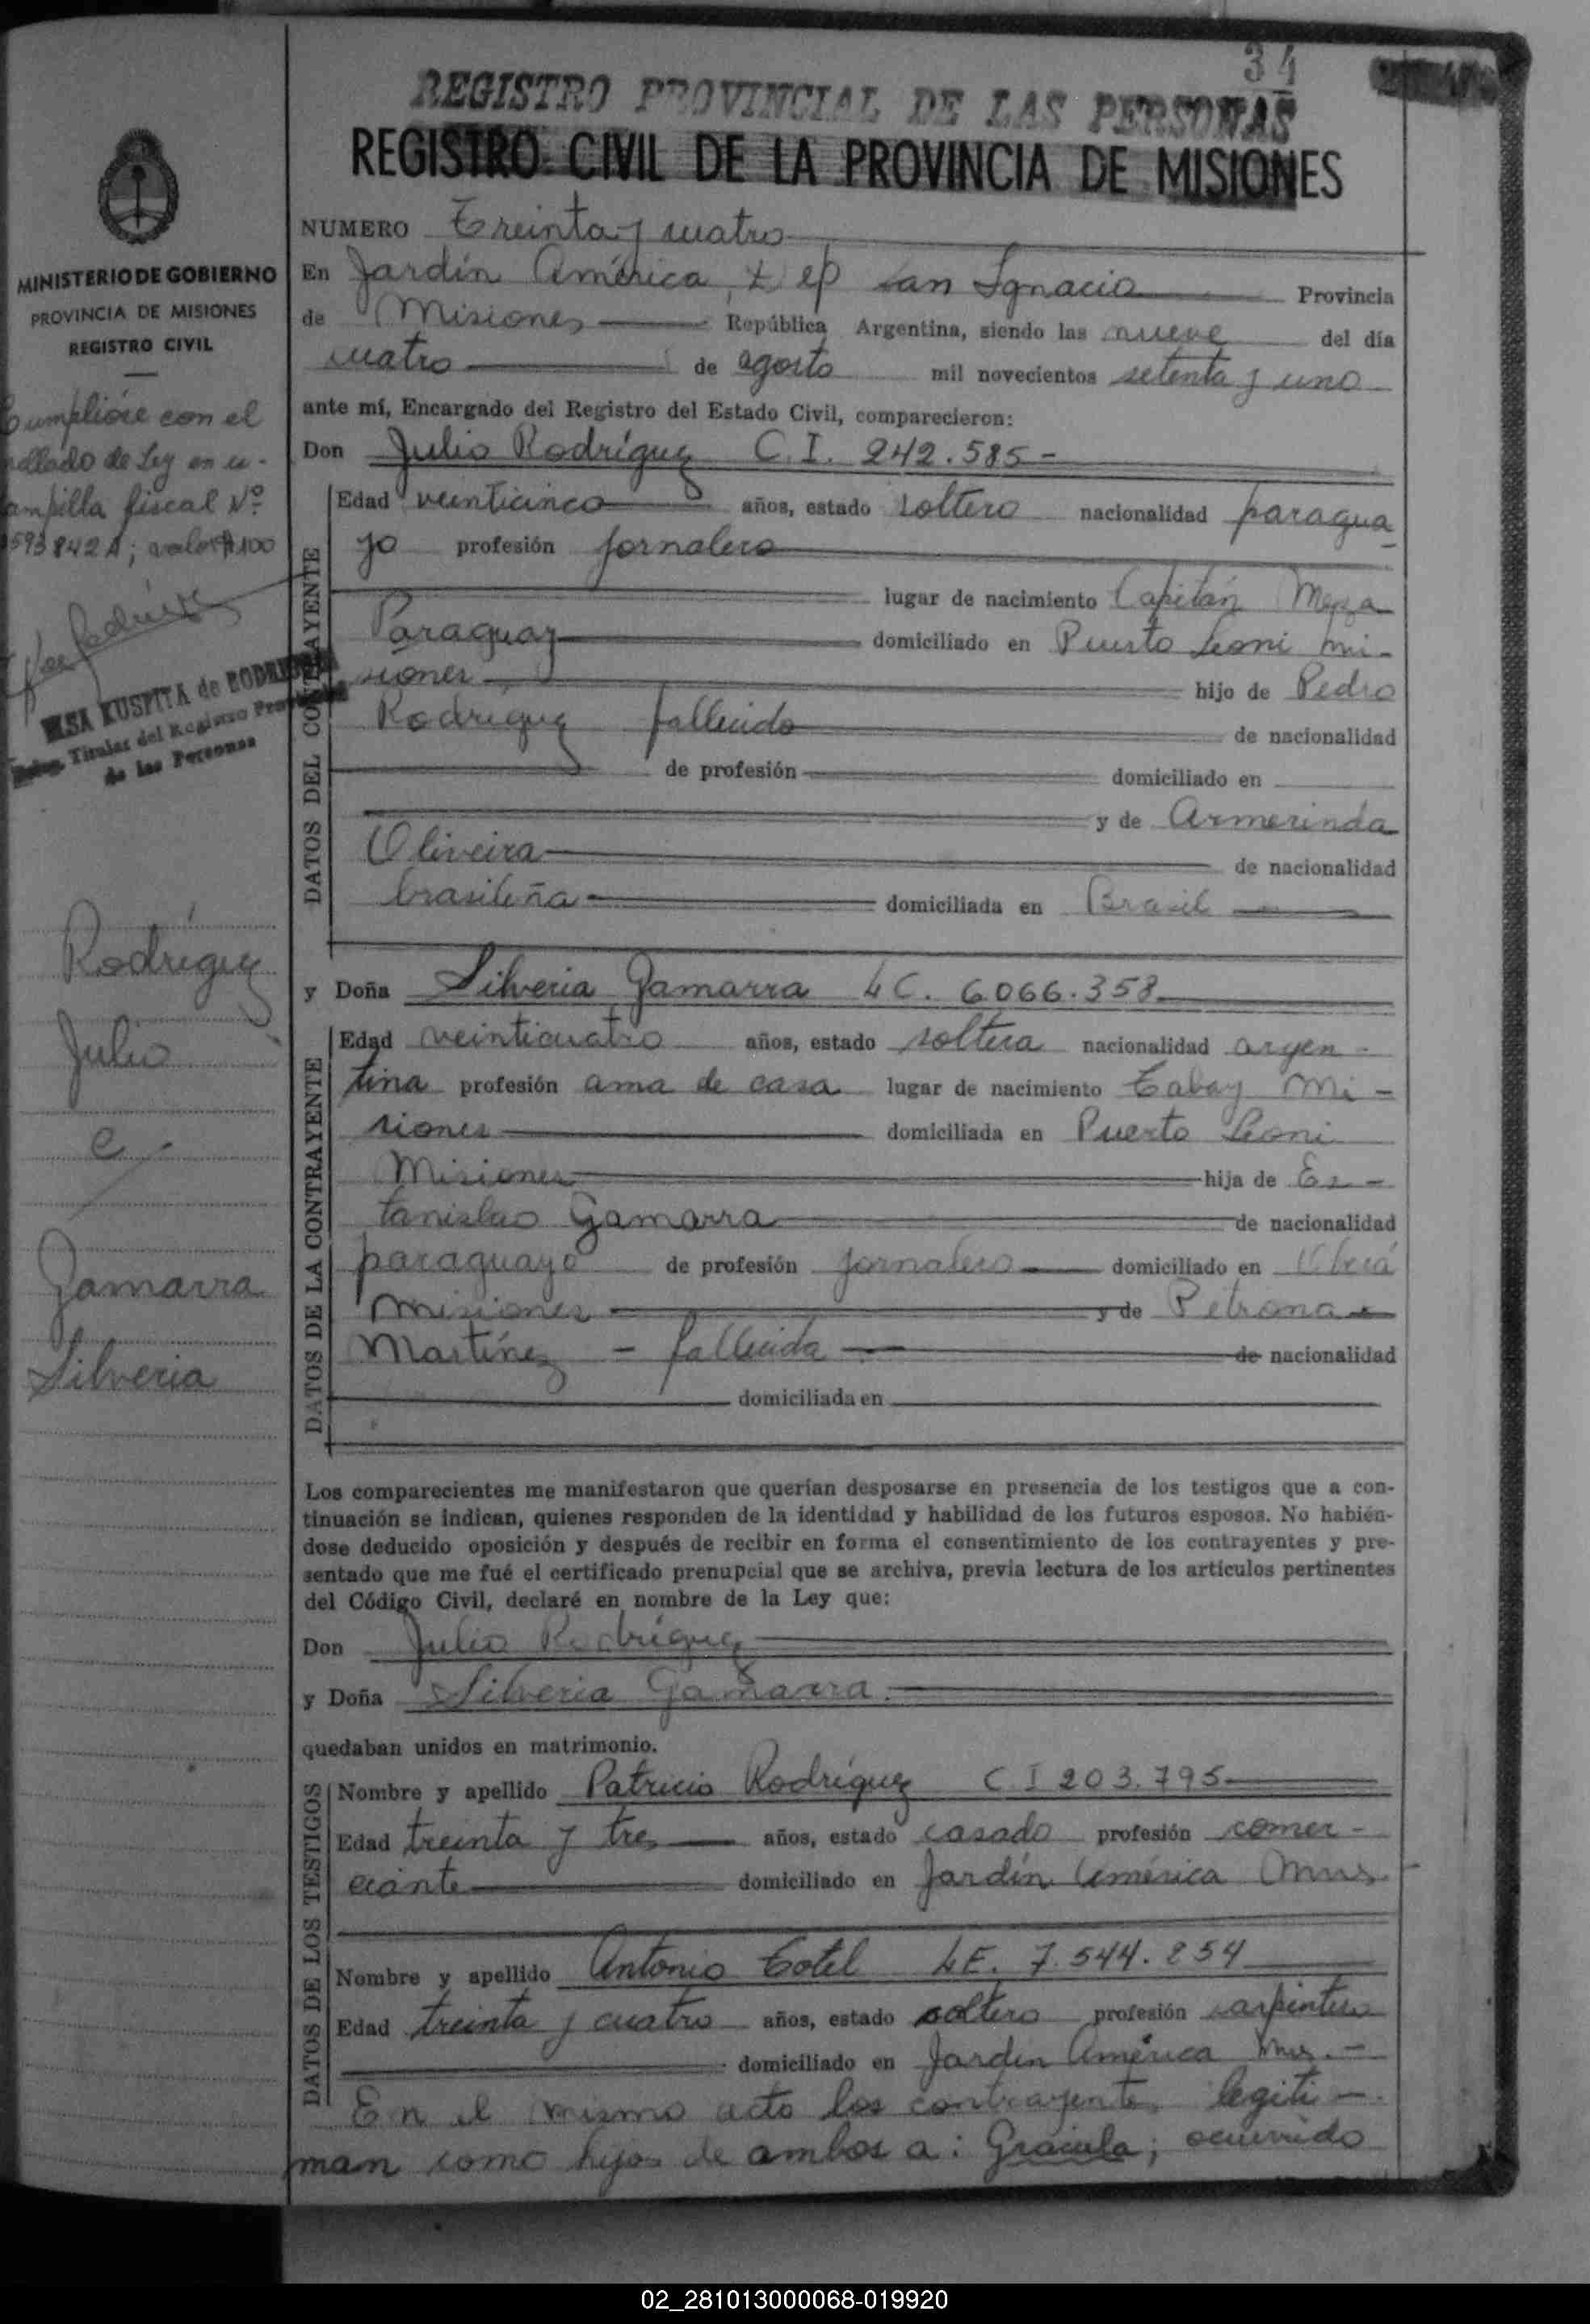 34
REGISTRO PROVINCIAL DE LAS PERSONAS
REGISTRO CIVIL DE LA PROVINCIA DE MISIONES
MINISTERIO DE GOBIERNO
PROVINCIA DE MISIONES
REGISTRO CIVIL
Cumplióse con el
sellado de Ley en es-
tampilla fiscal Nº
593842A; valor $100
ELSA KUSPITA de RODRIGUEZ
Titular del Registro Provincial
de las Personas
Rodríguez
Julio
e/.
Gamarra
Silveria
NUMERO Treinta y cuatro
En Jardín América, Dep San Ignacio Provincia
de Misiones República Argentina, siendo las nueve del día
cuatro de agosto mil novecientos setenta y uno
ante mí, Encargado del Registro del Estado Civil, comparecieron:
Don Julio Rodríguez C.I. 242.585-
DATOS DEL CONTRAYENTE
Edad veinticinco años, estado soltero nacionalidad paragua
yo profesión jornalero
lugar de nacimiento Capitán Meza
Paraguay domiciliado en Puerto Leoni Mi-
siones hijo de Pedro
Rodríguez fallecido de nacionalidad
de profesión domiciliado en
y de Armerinda
Oliveira de nacionalidad
brasileña domiciliada en Brasil
y Doña Silveria Gamarra LC. 6.066.358
DATOS DE LA CONTRAYENTE
Edad veinticuatro años, estado soltera nacionalidad argen-
tina profesión ama de casa lugar de nacimiento Tabay Mi-
siones domiciliada en Puerto Leoni
Misiones hija de Es-
tanislao Gamarra de nacionalidad
paraguayo de profesión jornalero domiciliado en Oberá
Misiones y de Petrona
Martínez - fallecida de nacionalidad
domiciliada en
Los comparecientes me manifestaron que querían desposarse en presencia de los testigos que a con-
tinuación se indican, quienes responden de la identidad y habilidad de los futuros esposos. No habién-
dose deducido oposición y después de recibir en forma el consentimiento de los contrayentes y pre-
sentado que me fué el certificado prenupcial que se archiva, previa lectura de los artículos pertinentes
del Código Civil, declaré en nombre de la Ley que:
Don Julio Rodríguez
y Doña Silveria Gamarra.
quedaban unidos en matrimonio.
DATOS DE LOS TESTIGOS
Nombre y apellido Patricio Rodríguez C.I 203.795
Edad treinta y tres años, estado casado profesión comer-
ciante domiciliado en Jardín América Mns.
Nombre y apellido Antonio Totel LE. 7.544.854
Edad treinta y cuatro años, estado soltero profesión carpintero
domiciliado en Jardín América Mns.-
En el mismo acto los contrayentes legiti-
man como hijos de ambos a: Graciela; ocurrido
02_281013000068-019920